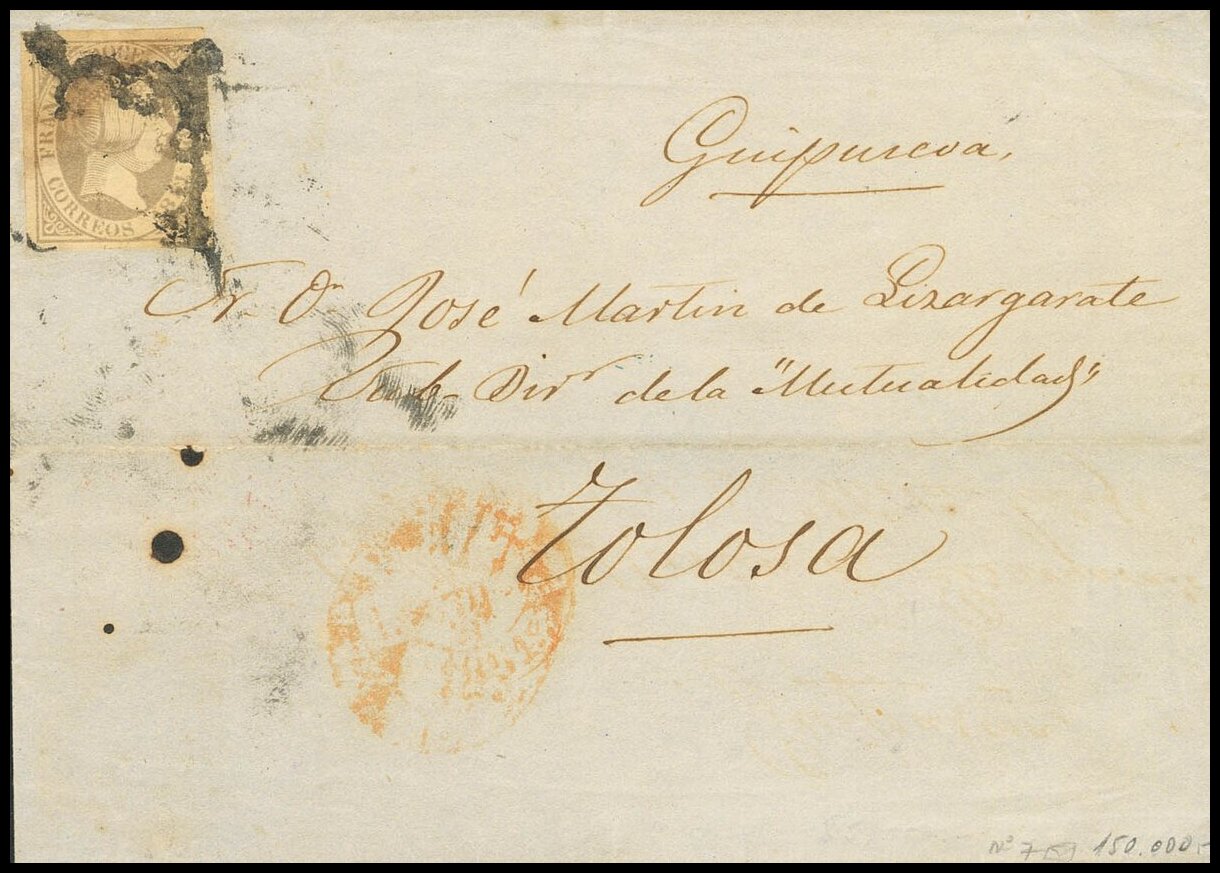 FRANCO DOCE
CORREOS
Guipuscoa,
Sr. Dn. José Martin de Lizargarate
Sub-Dirr. de la "Mutualidad"
Tolosa
Nº 7 150.000